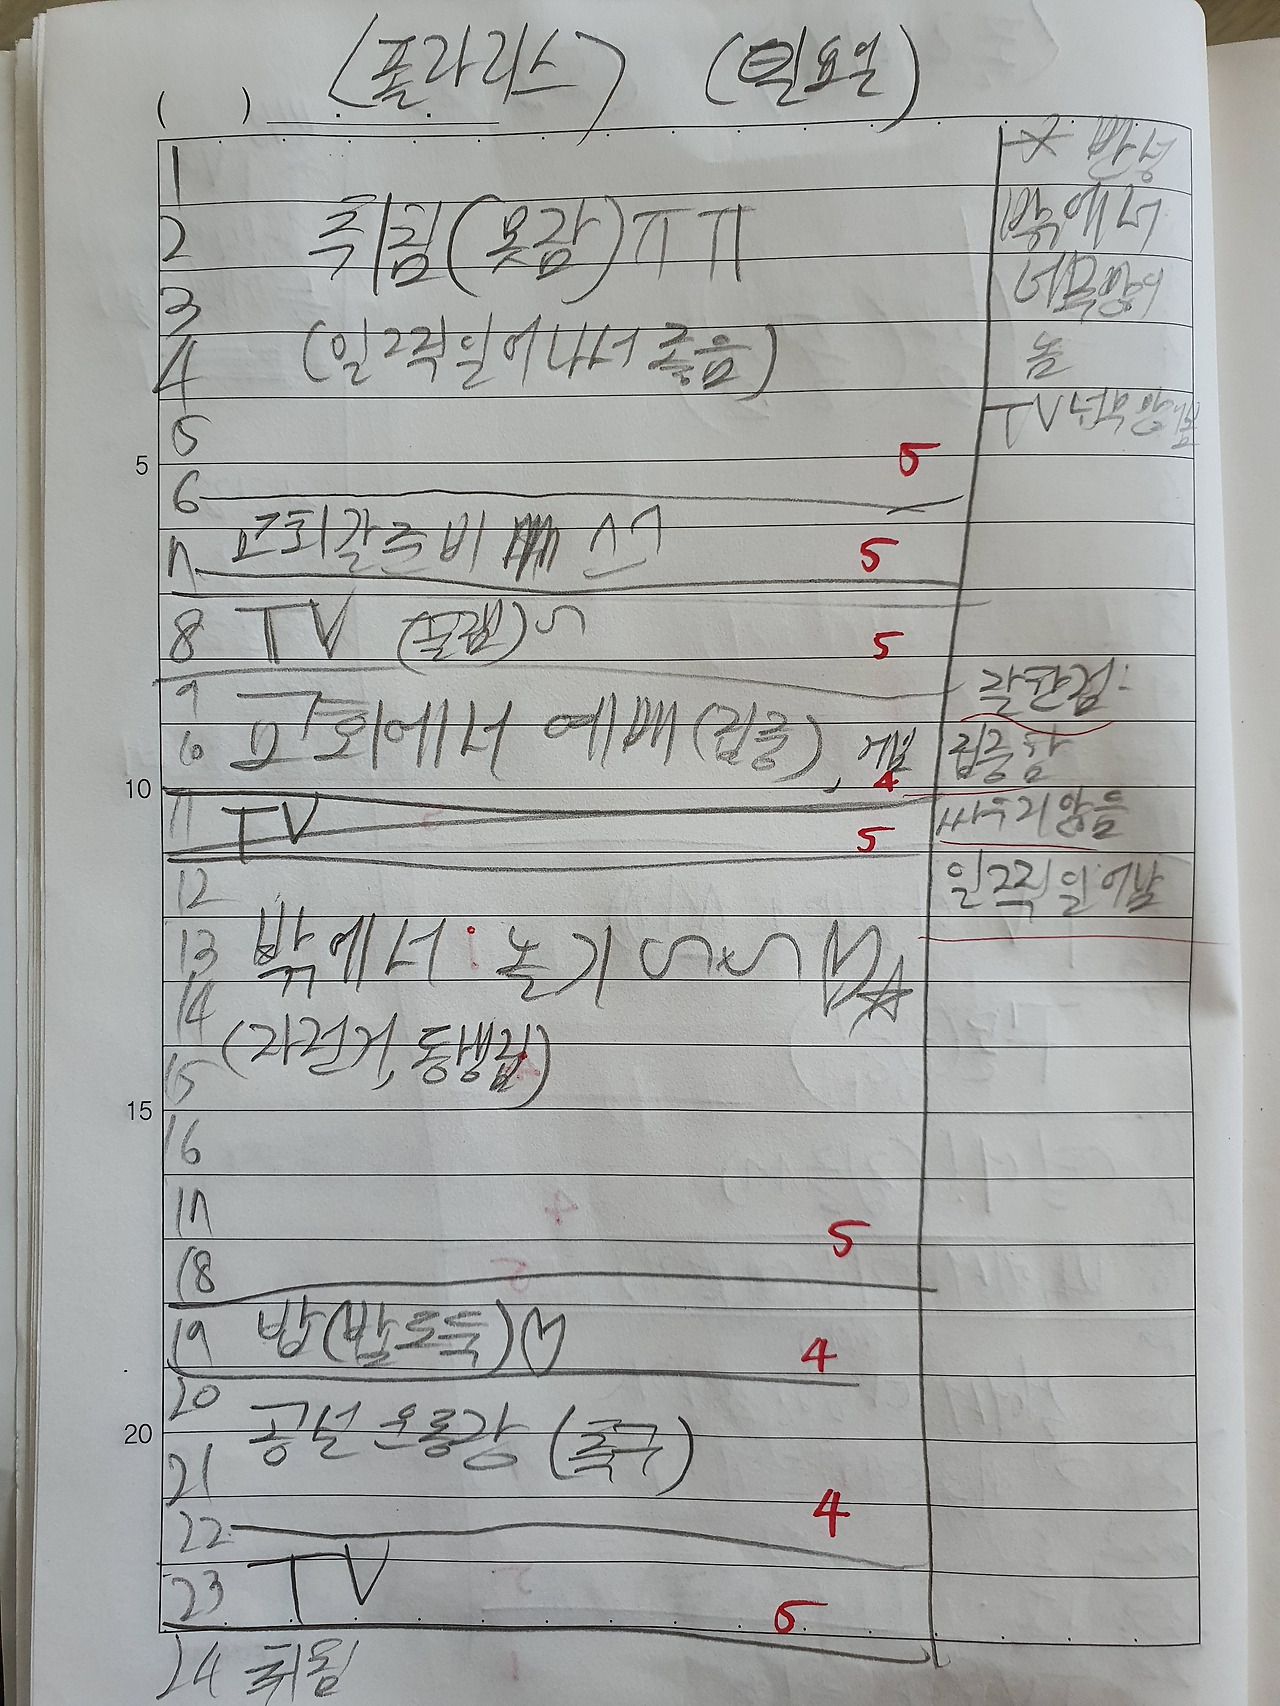 (폴라리스) (일요일)
( )
1
2 취침(못잠)ㅠㅠ
3
4 (일그릭일어나서 졸음)
5
5 5
6
교회갈준비
7 5
8 TV 5
9
10 교회에서 예배(집중),
10 4
11 TV 5
12
13 밖에서 놀기
14
15 (자전거, 동생집)
15
16
17 5
18
19 밥(밥도둑)♡ 4
20
20 공설운동장 (축구)
21 4
22
23 TV 5
24 취침
☆ 반성
밖에너
너무많이
놈
TV너무많이봄
잘한점
집중함
싸우지않음
일그릭일어남